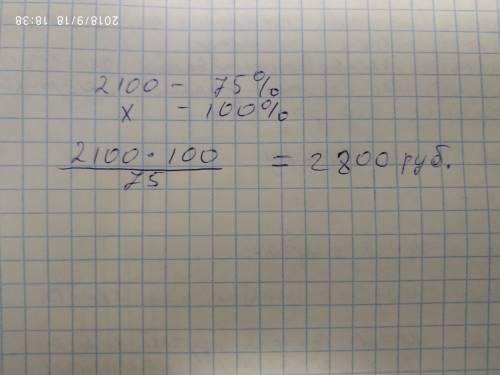 2018/9/18 18:38
2100 - 75%
x - 100%
2100 · 100
75
= 2800 руб.